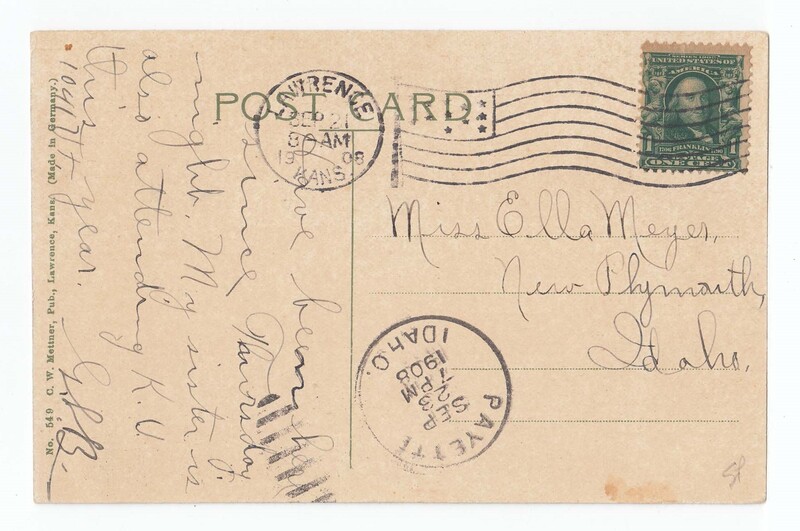 POST CARD
LAWRENCE
SEP 21
8 AM
1908
KANS.
SERIES 1902
UNITED STATES OF
AMERICA
1706 FRANKLIN 1790
ONE CENT
Miss Ella Meyer,
New Plymouth,
Idaho.
PAYETTE
SEP
23
7 PM
1908
IDAHO.
Have been here
since Thursday
night. My sister is
also attending K. U.
this year.
No. 549 C. W. Mettner, Pub., Lawrence, Kans. (Made in Germany.)